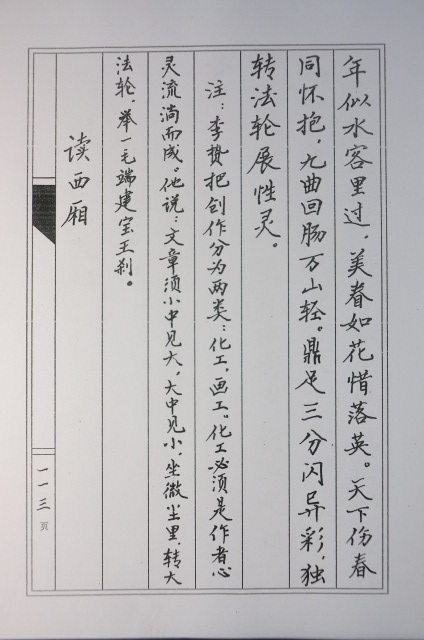 年似水客里过，美眷如花惜落英。天下伤春
同怀抱，九曲回肠万山轻。鼎足三分闪异彩，独
转法轮展性灵。
注：李贽把创作分为两类：化工，画工。化工必须是作者心
灵流淌而成。他说：文章须小中见大，大中见小，坐微尘里，转大
法轮，举一毛端建宝王刹。
读西厢
一一三页